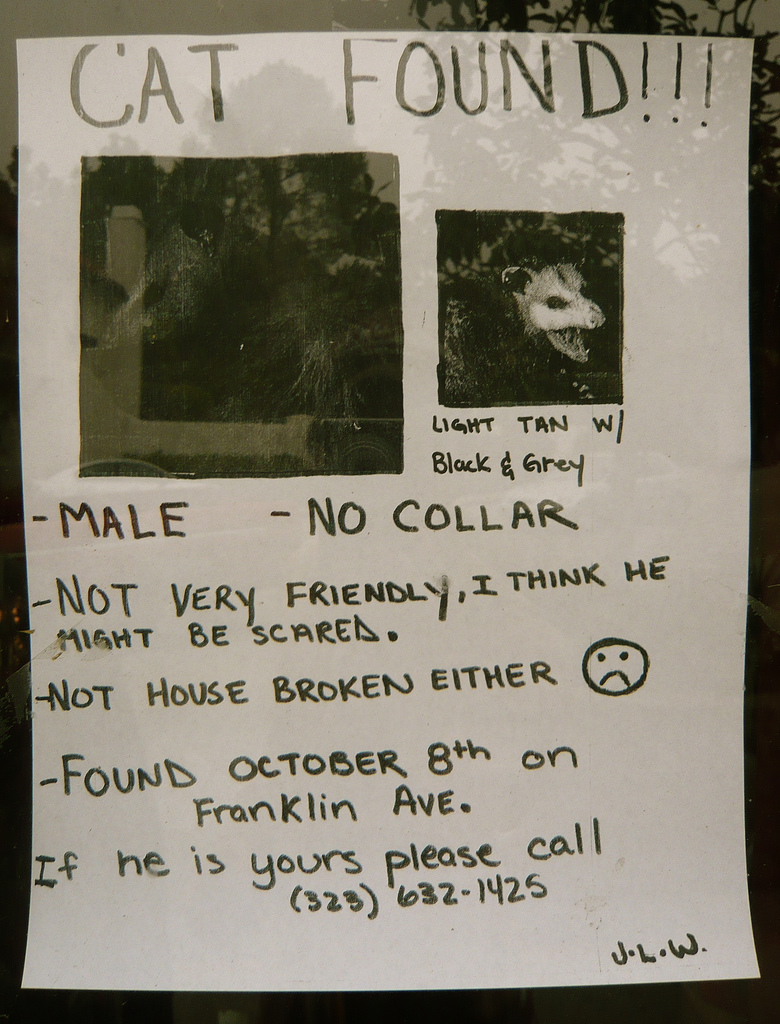 CAT FOUND!!!
LIGHT TAN W/
Black & Grey
-MALE -NO COLLAR
-NOT VERY FRIENDLY, I THINK HE
MIGHT BE SCARED.
-NOT HOUSE BROKEN EITHER
-FOUND OCTOBER 8th on
Franklin AVE.
If he is yours please call
(323) 632-1425
J.L.W.